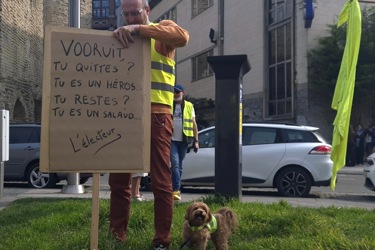 VOORUIT
TU QUITTES ?
TU ES UN HÉROS.
TU RESTES ?
TU ES UN SALAUD.
L'électeur